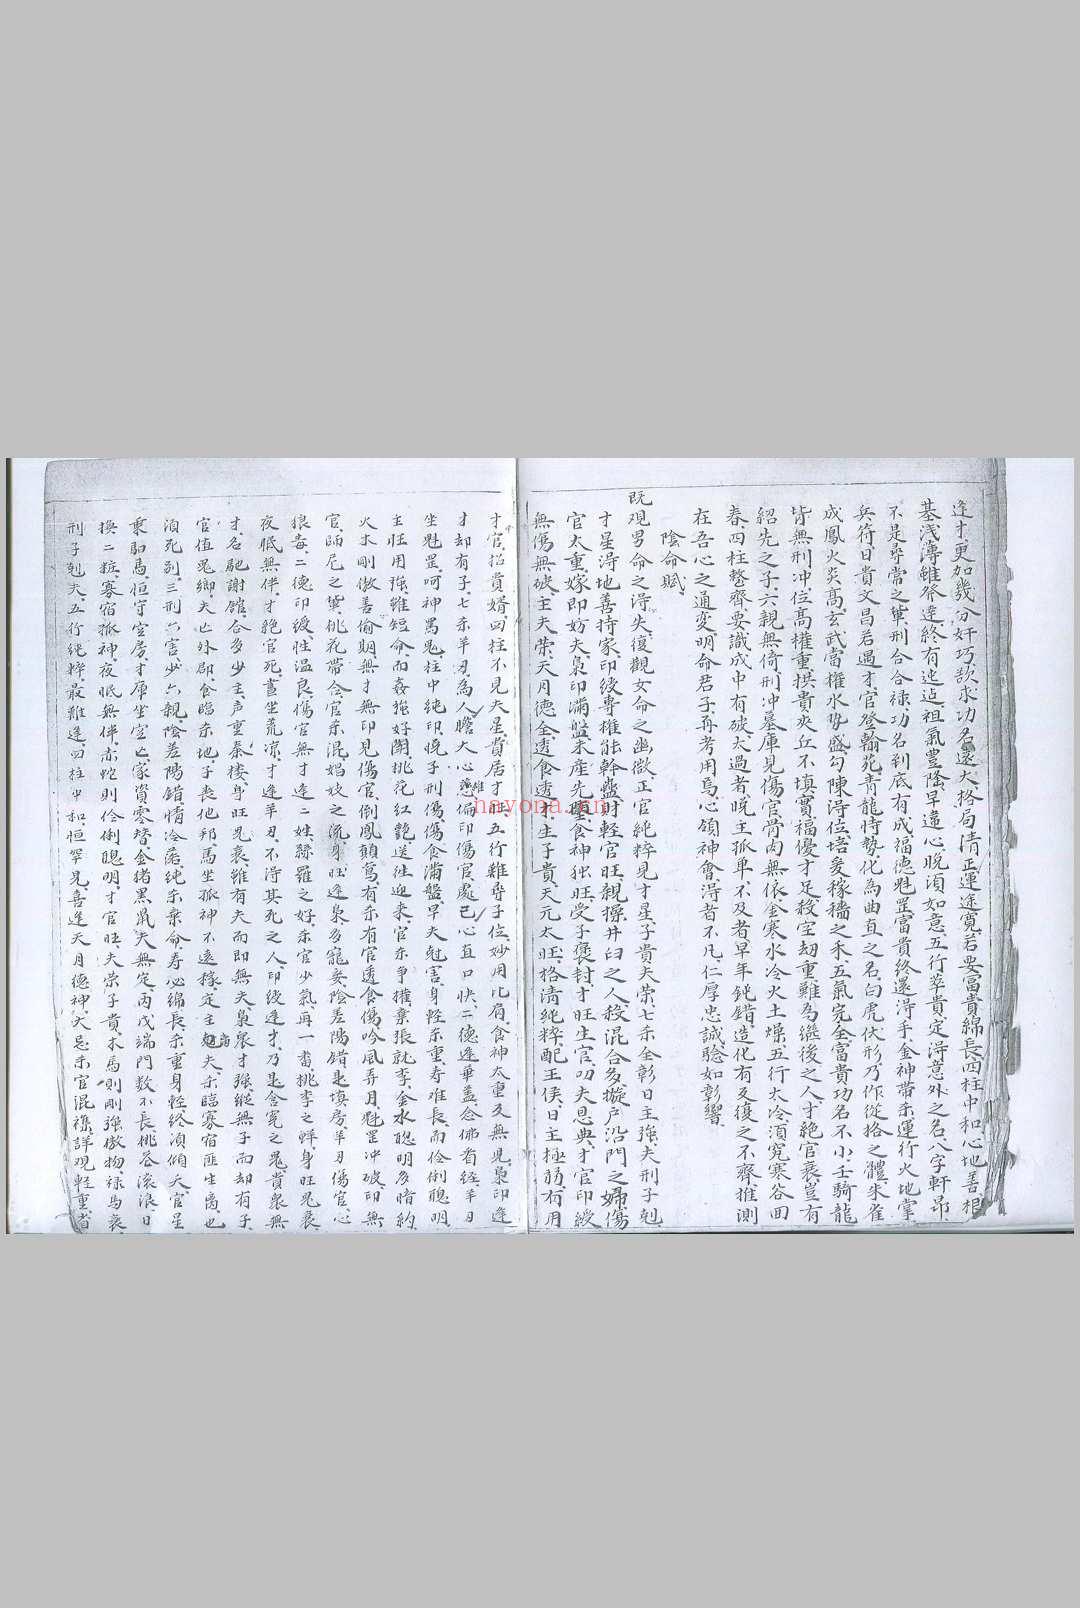 逢才更加幾分奸巧欲求功名遠大格局清正運途寬若要富貴綿長四柱中和心地善根
基淺薄雖發達終有迍邅祖氣豐隆早違心晚須如意五行萃貴定得意外之名八字軒昂
不是尋常之輩刑合合祿功名到底有成福德魁罡富貴終還得手金神帶殺運行火地掌
兵符日貴文昌若遇才官登翰苑青龍恃勢化為曲直之名白虎伏形乃作從格之體朱雀
成鳳火炎高玄武當權水勢盛勾陳得位培爰稼穡之禾五氣完全富貴功名不小壬騎龍
皆無刑冲位高權重拱貴夾丘不填實福優才足殺宝劫重難為繼後之人才絕官衰豈有
紹先之子六親無倚刑冲墓庫見傷官骨肉無依金寒水冷火土燥五行太冷須究寒谷回
春四柱整齊要識成中有破太過者晚主孤單不及者早年鈍錯造化有反復之不齊推測
在吾心之通變明命君子再考用焉心領神會得者不凡仁厚忠誠驗如彰響
陰命賦
既觀男命之得失復觀女命之幽微正官純粹見才星子貴夫榮七殺全彰日主強夫刑子剋
才星得地善持家印綬專權能幹蠱財輕官旺親操井臼之人殺混合多旋戶沿門之婦傷
官太重嫁即妨夫梟印滿盤未產先墮食神独旺受子褒封才旺生官叨夫恩典才官印綬
無傷無破主夫榮天月德全透食透才生子貴天元太旺格清純粹配王侯日主極弱有用
才官招貴婿四柱不見夫星貴居才旺五行難尋子位妙用比肩食神太重又無見梟印逢
才却有子七殺羊刃為人膽大心雄偏印傷官處己心直口快二德逢華蓋念佛看經羊刃
坐魁罡呵神罵鬼柱中純印晚子刑傷傷食滿盤早夫尅害身輕殺重寿难長而伶俐聰明
主旺用強雖短命而姦強好鬧桃花紅艷送徃迎来官殺争權棄張就李金水聪明多暗約
火木剛傲善偷期無才無印見傷官倒鳳顛鸞有殺有官透食傷吟風弄月魁罡冲破印無
官師尼之輩桃花帶合官殺混娼妓之流身旺逢梟多寵妾陰差陽錯是填房羊刃傷官心
狼毒二德印綬性温良傷官無才逢二姓絲羅之好殺官少氣再一畨桃李之蟬身旺鬼衰
夜眠無伴才絕官死晝坐荒凉才逢羊刃不得其死之人印綬逢才乃是含冤之鬼貴衆無
才名馳謝館合多少主声重秦楼身旺鬼衰雖有夫而却無夫梟衆才強縱無子而却有子
官值鬼鄉夫亡外郡食臨殺地子喪他邦馬坐孤神不遠稼定主尅夫殺臨寡宿匪生离也
須死别三刑六害少六親陰差陽錯情冷落純殺棄命寿必綿長殺重身輕終須傾夭官星
乘馹馬恒守空房才庫坐空亡家資零替金猪黑鼠夫無定丙戌端門数不長桃花滾浪日
換二粧寡宿孤神夜眠無伴赤蛇則伶俐聰明才官旺夫荣子貴木馬則剛強傲物祿馬衰
刑子剋夫五行純粹最難逢四柱中和恒罕見喜逢天月德神大忌殺官混襍詳观輕重省